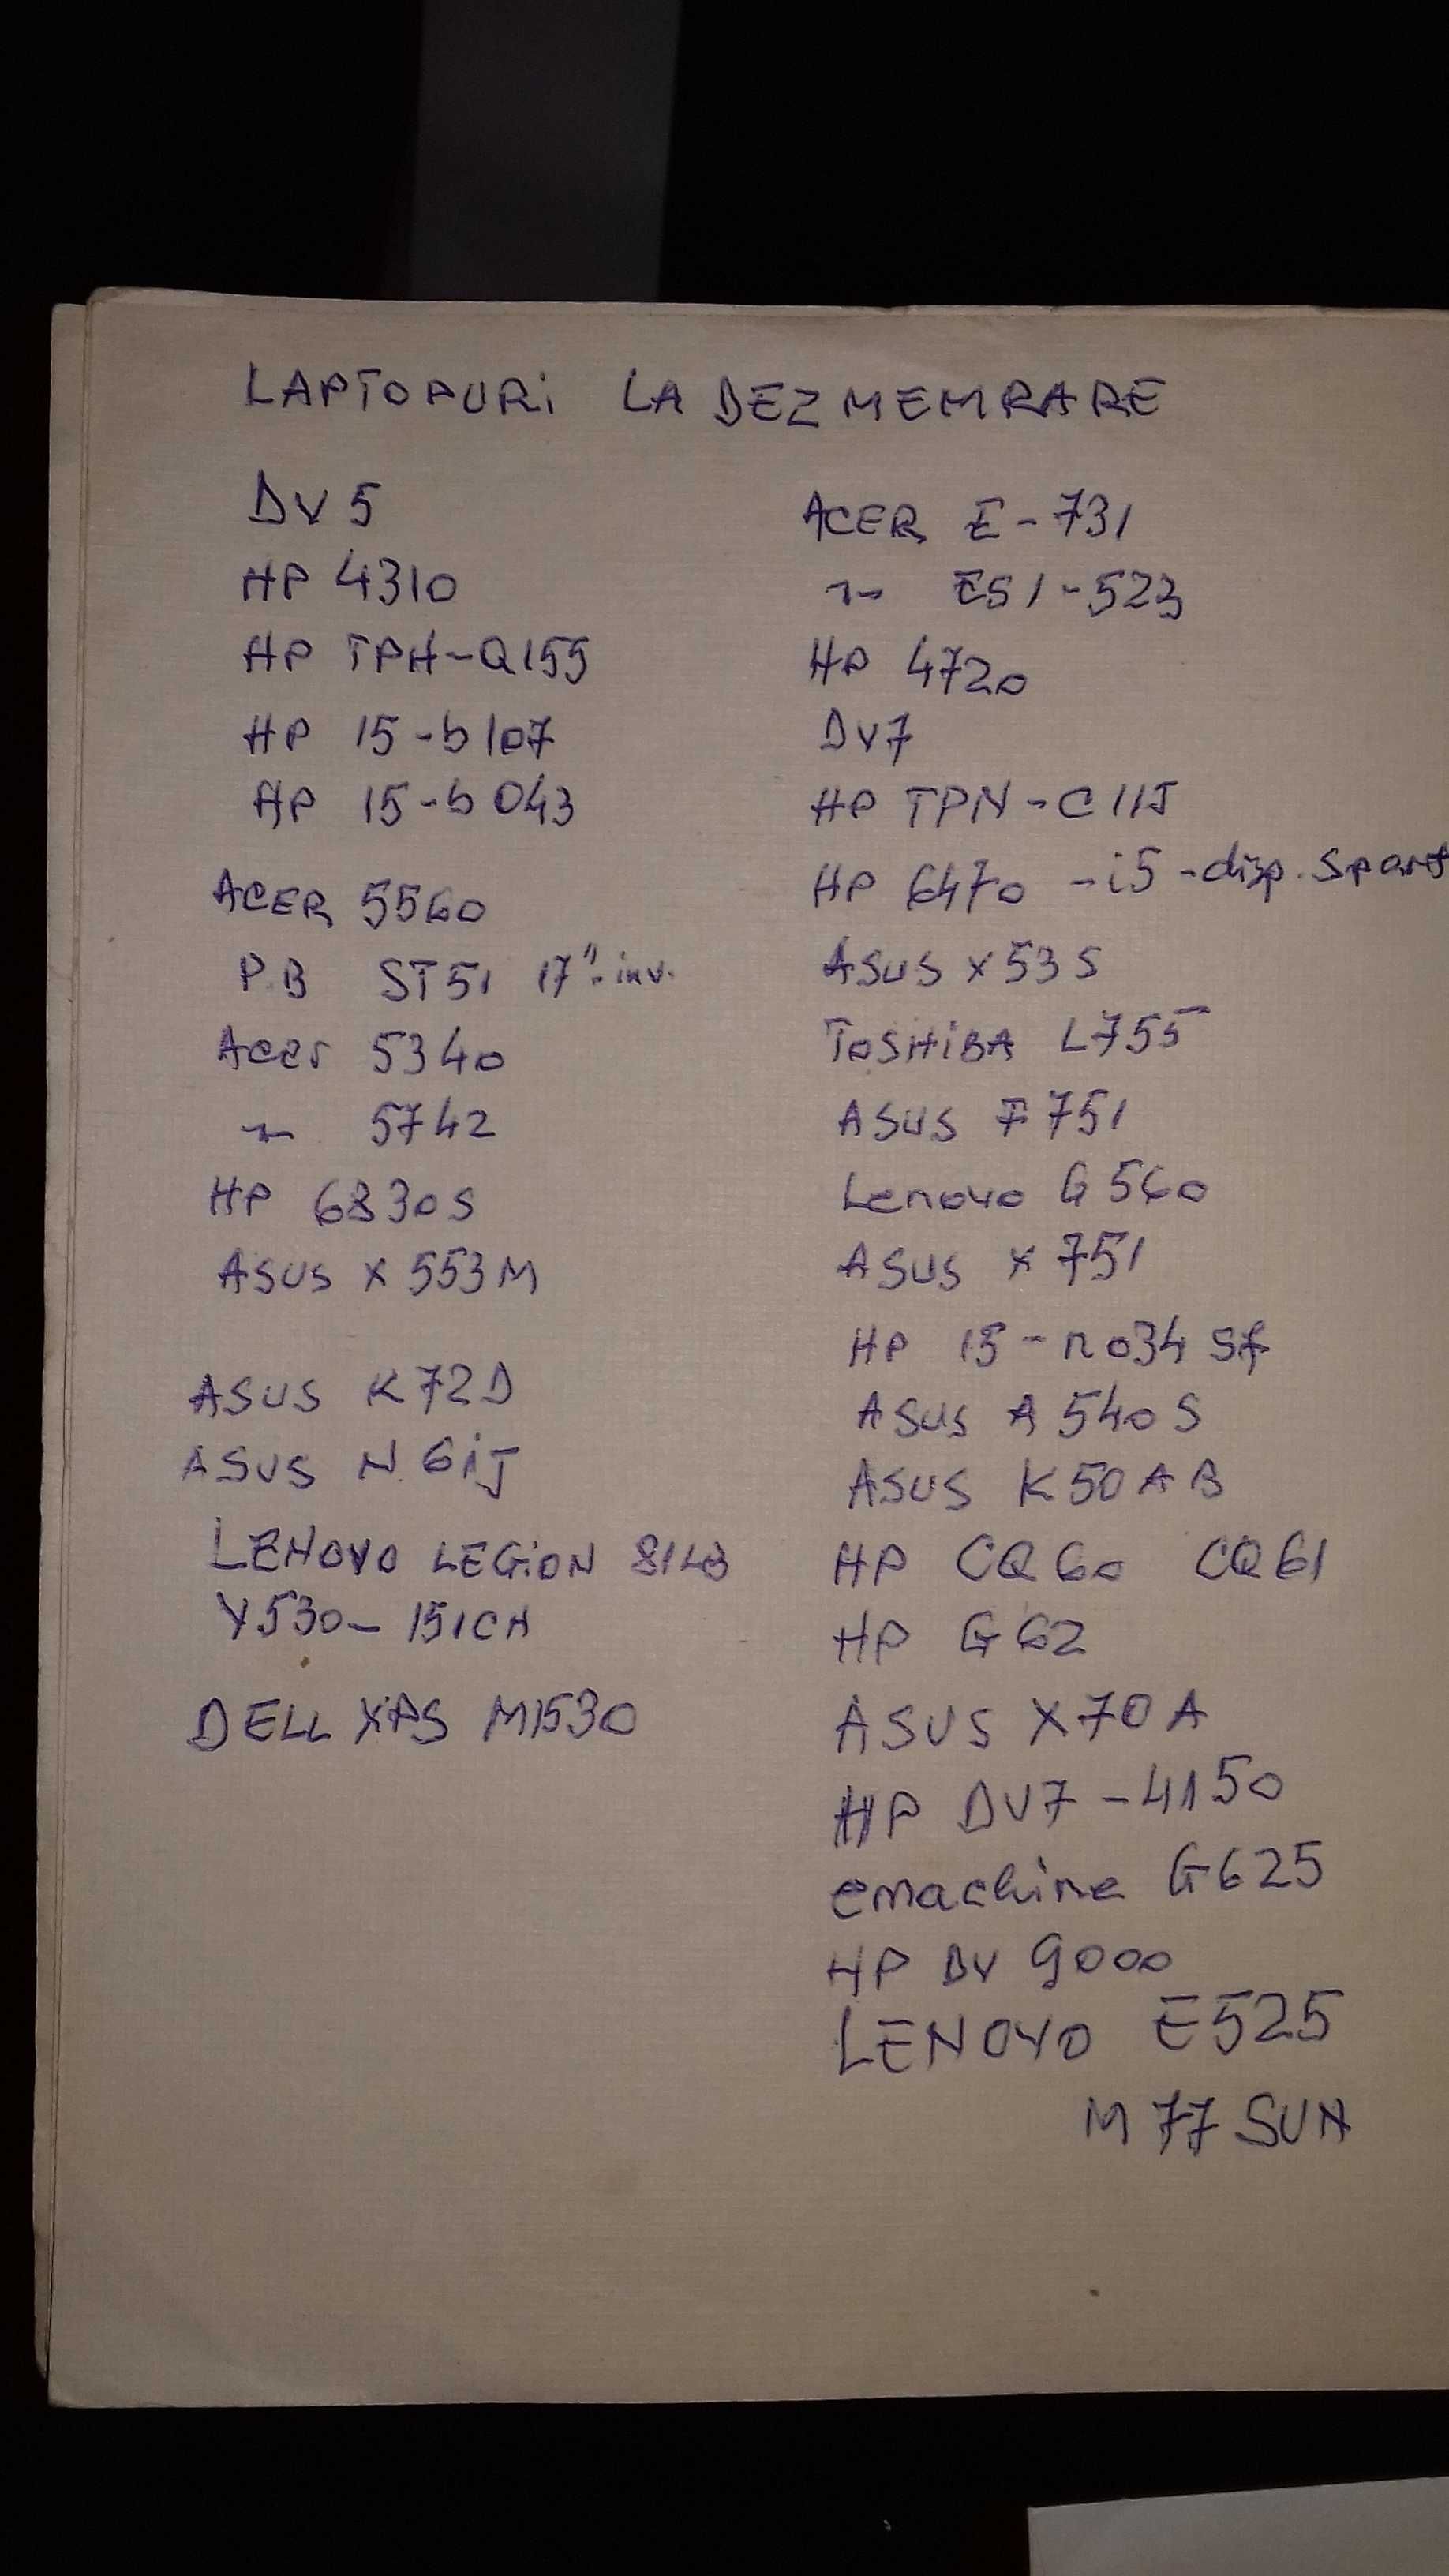 LAPTOPURi LA DEZMEMRARE
DV5
HP 4310
HP TPH-Q155
HP 15-b107
HP 15-b043
ACER 5560
P.B ST51 17" inv.
Acer 5340
-"- 5742
HP 6830S
ASUS X553M
ASUS K72D
ASUS N61J
LENOVO LEGiON 81LB
Y530-15ICH
DELL XPS M1530
ACER E-731
-"- ES1-523
HP 4720
DV7
HP TPN-C115
HP 6470 -i5 -disp. spart
ASUS X53S
TOSHiBA L755
ASUS F751
Lenovo G560
ASUS X751
HP 15-n034 sf
ASUS A540S
ASUS K50AB
HP CQ60 CQ61
HP G62
ASUS X70A
HP DV7-4150
emachine G625
HP DV 9000
LENOVO E525
M77SUN